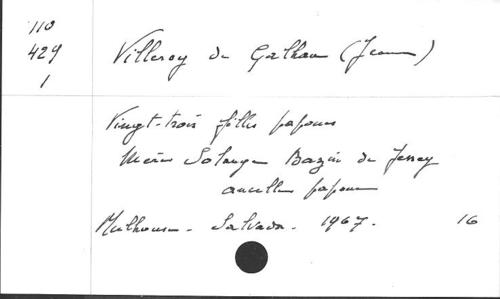 110
429
1
Villeroy de Galhau (Jean)
Vingt-trois filles papoues
Mère Solange Bazin de Jessey
ancelle papoue
Mulhouse - Salvator - 1967. 16